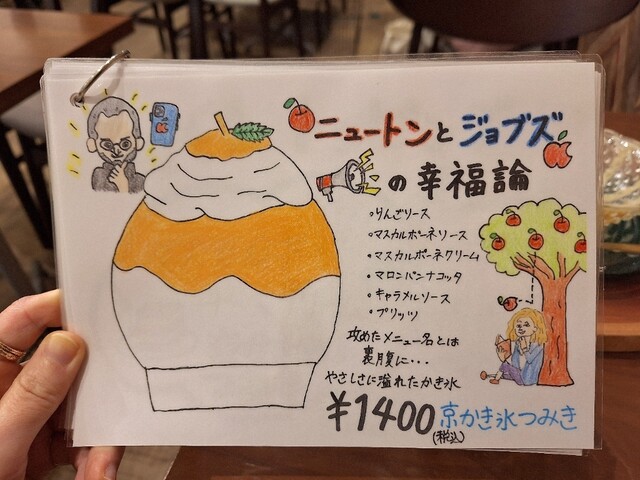 ニュートンとジョブズ
の幸福論
・りんごソース
・マスカルポーネソース
・マスカルポーネクリーム
・マロンパンナコッタ
・キャラメルソース
・プリッツ
攻めたメニュー名とは
裏腹に・・・
やさしさに溢れたかき氷
¥1400
(税込)
京かき氷つみき